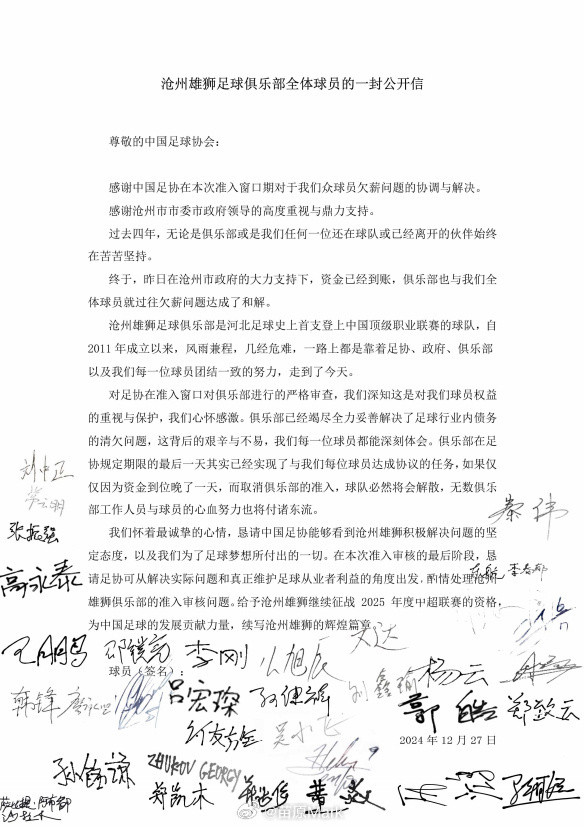 沧州雄狮足球俱乐部全体球员的一封公开信
尊敬的中国足球协会：
感谢中国足协在本次准入窗口期对于我们众球员欠薪问题的协调与解决。
感谢沧州市市委市政府领导的高度重视与鼎力支持。
过去四年，无论是俱乐部或是我们任何一位还在球队或已经离开的伙伴始终
在苦苦坚持。
终于，昨日在沧州市政府的大力支持下，资金已经到账，俱乐部也与我们全
体球员就过往欠薪问题达成了和解。
沧州雄狮足球俱乐部是河北足球史上首支登上中国顶级职业联赛的球队，自
2011年成立以来，风雨兼程，几经危难，一路上都是靠着足协、政府、俱乐部
以及我们每一位球员团结一致的努力，走到了今天。
对足协在准入窗口对俱乐部进行的严格审查，我们深知这是对我们球员权益
的重视与保护，我们心怀感激。俱乐部已经竭尽全力妥善解决了足球行业内债务
的清欠问题，这背后的艰辛与不易，我们每一位球员都能深刻体会。俱乐部在足
协规定期限的最后一天其实已经实现了与我们每位球员达成协议的任务，如果仅
仅因为资金到位晚了一天，而取消俱乐部的准入，球队必然将会解散，无数俱乐
部工作人员与球员的心血努力也将付诸东流。
我们怀着最诚挚的心情，恳请中国足协能够看到沧州雄狮积极解决问题的坚
定态度，以及我们为了足球梦想所付出的一切。在本次准入审核的最后阶段，恳
请足协可从解决实际问题和真正维护足球从业者利益的角度出发，酌情处理沧州
雄狮俱乐部的准入审核问题。给予沧州雄狮继续征战 2025 年度中超联赛的资格，
为中国足球的发展贡献力量，续写沧州雄狮的辉煌篇章。
球员（签名）：
张振强
高永泰
王鹏
李刚
杨云
韩锋
吕宏琛
孙健
刘鑫瑜
郭皓
郑致云
2024 年 12 月 27 日
ZHUKOV GEORGY
郑凯木
@苗原Mark